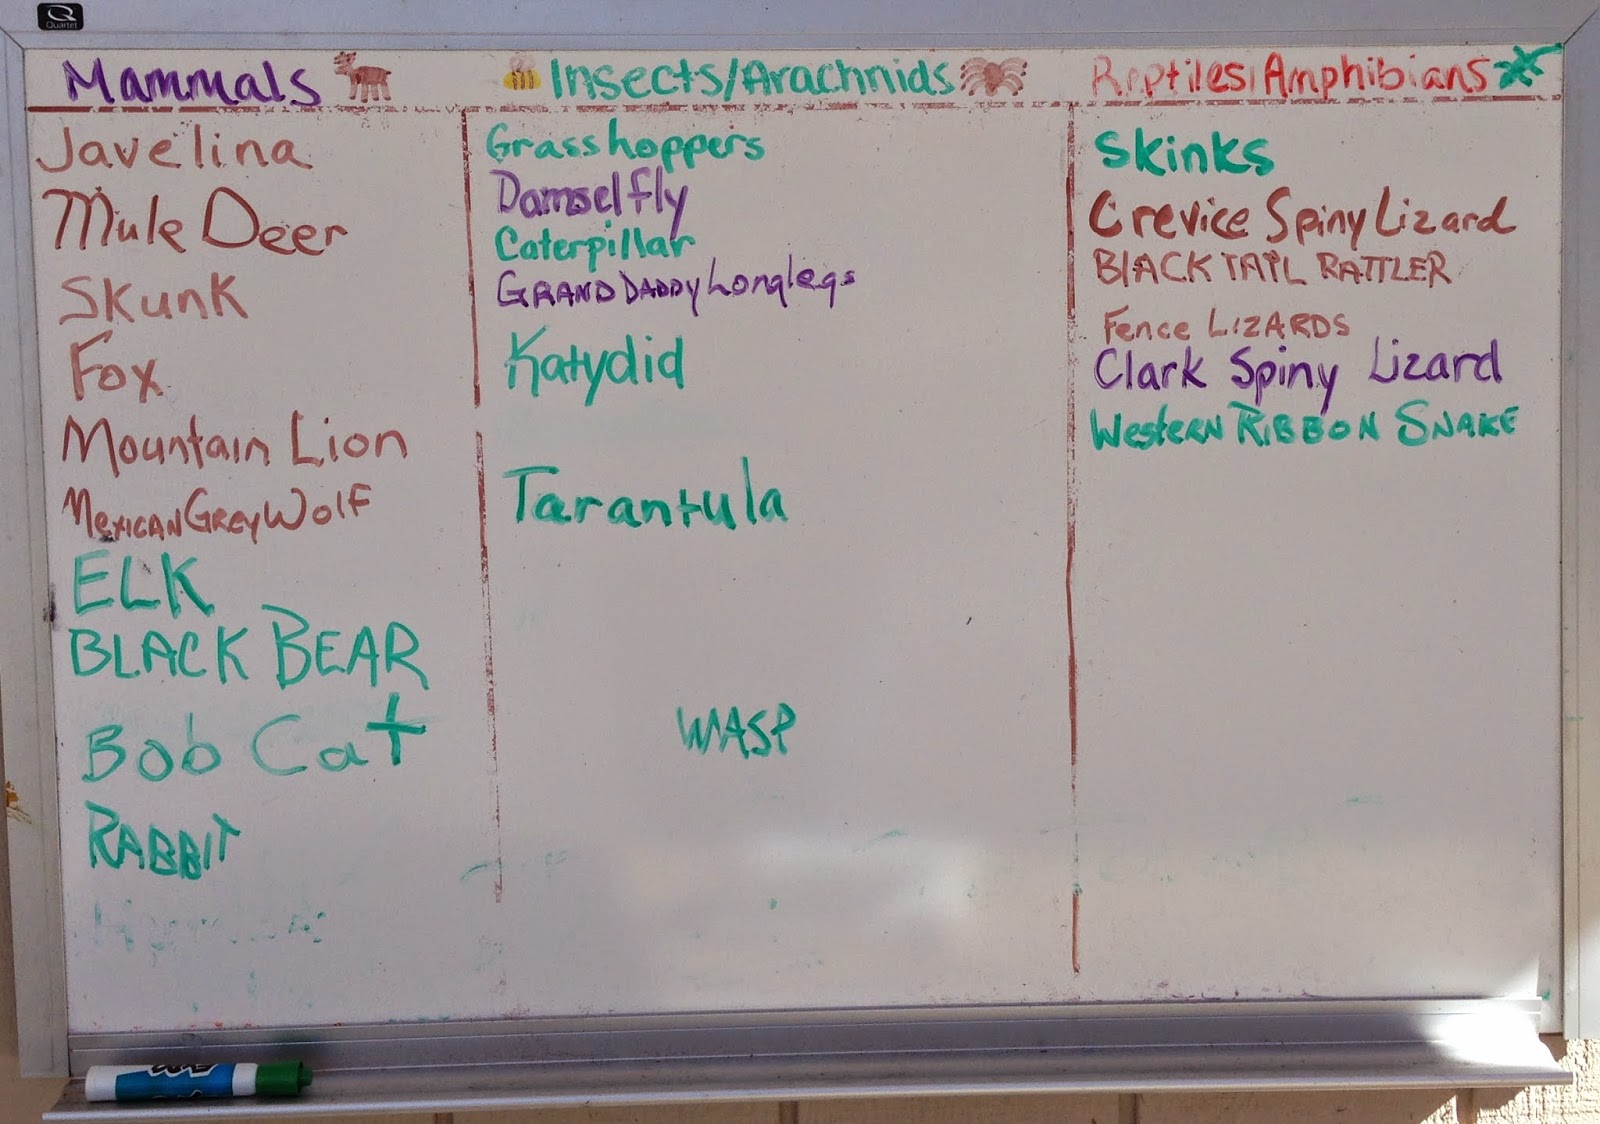 Quartet
Mammals
Javelina
Mule Deer
Skunk
Fox
Mountain Lion
Mexican Grey Wolf
ELK
BLACK BEAR
Bob Cat
RABBIT
Insects/Arachnids
Grasshoppers
Damselfly
Caterpillar
GRAND DADDY Longlegs
Katydid
Tarantula
WASP
Reptiles/Amphibians
Skinks
Crevice Spiny Lizard
BLACK TAIL RATTLER
Fence LIZARDS
Clark Spiny Lizard
Western RIBBON SNAKE